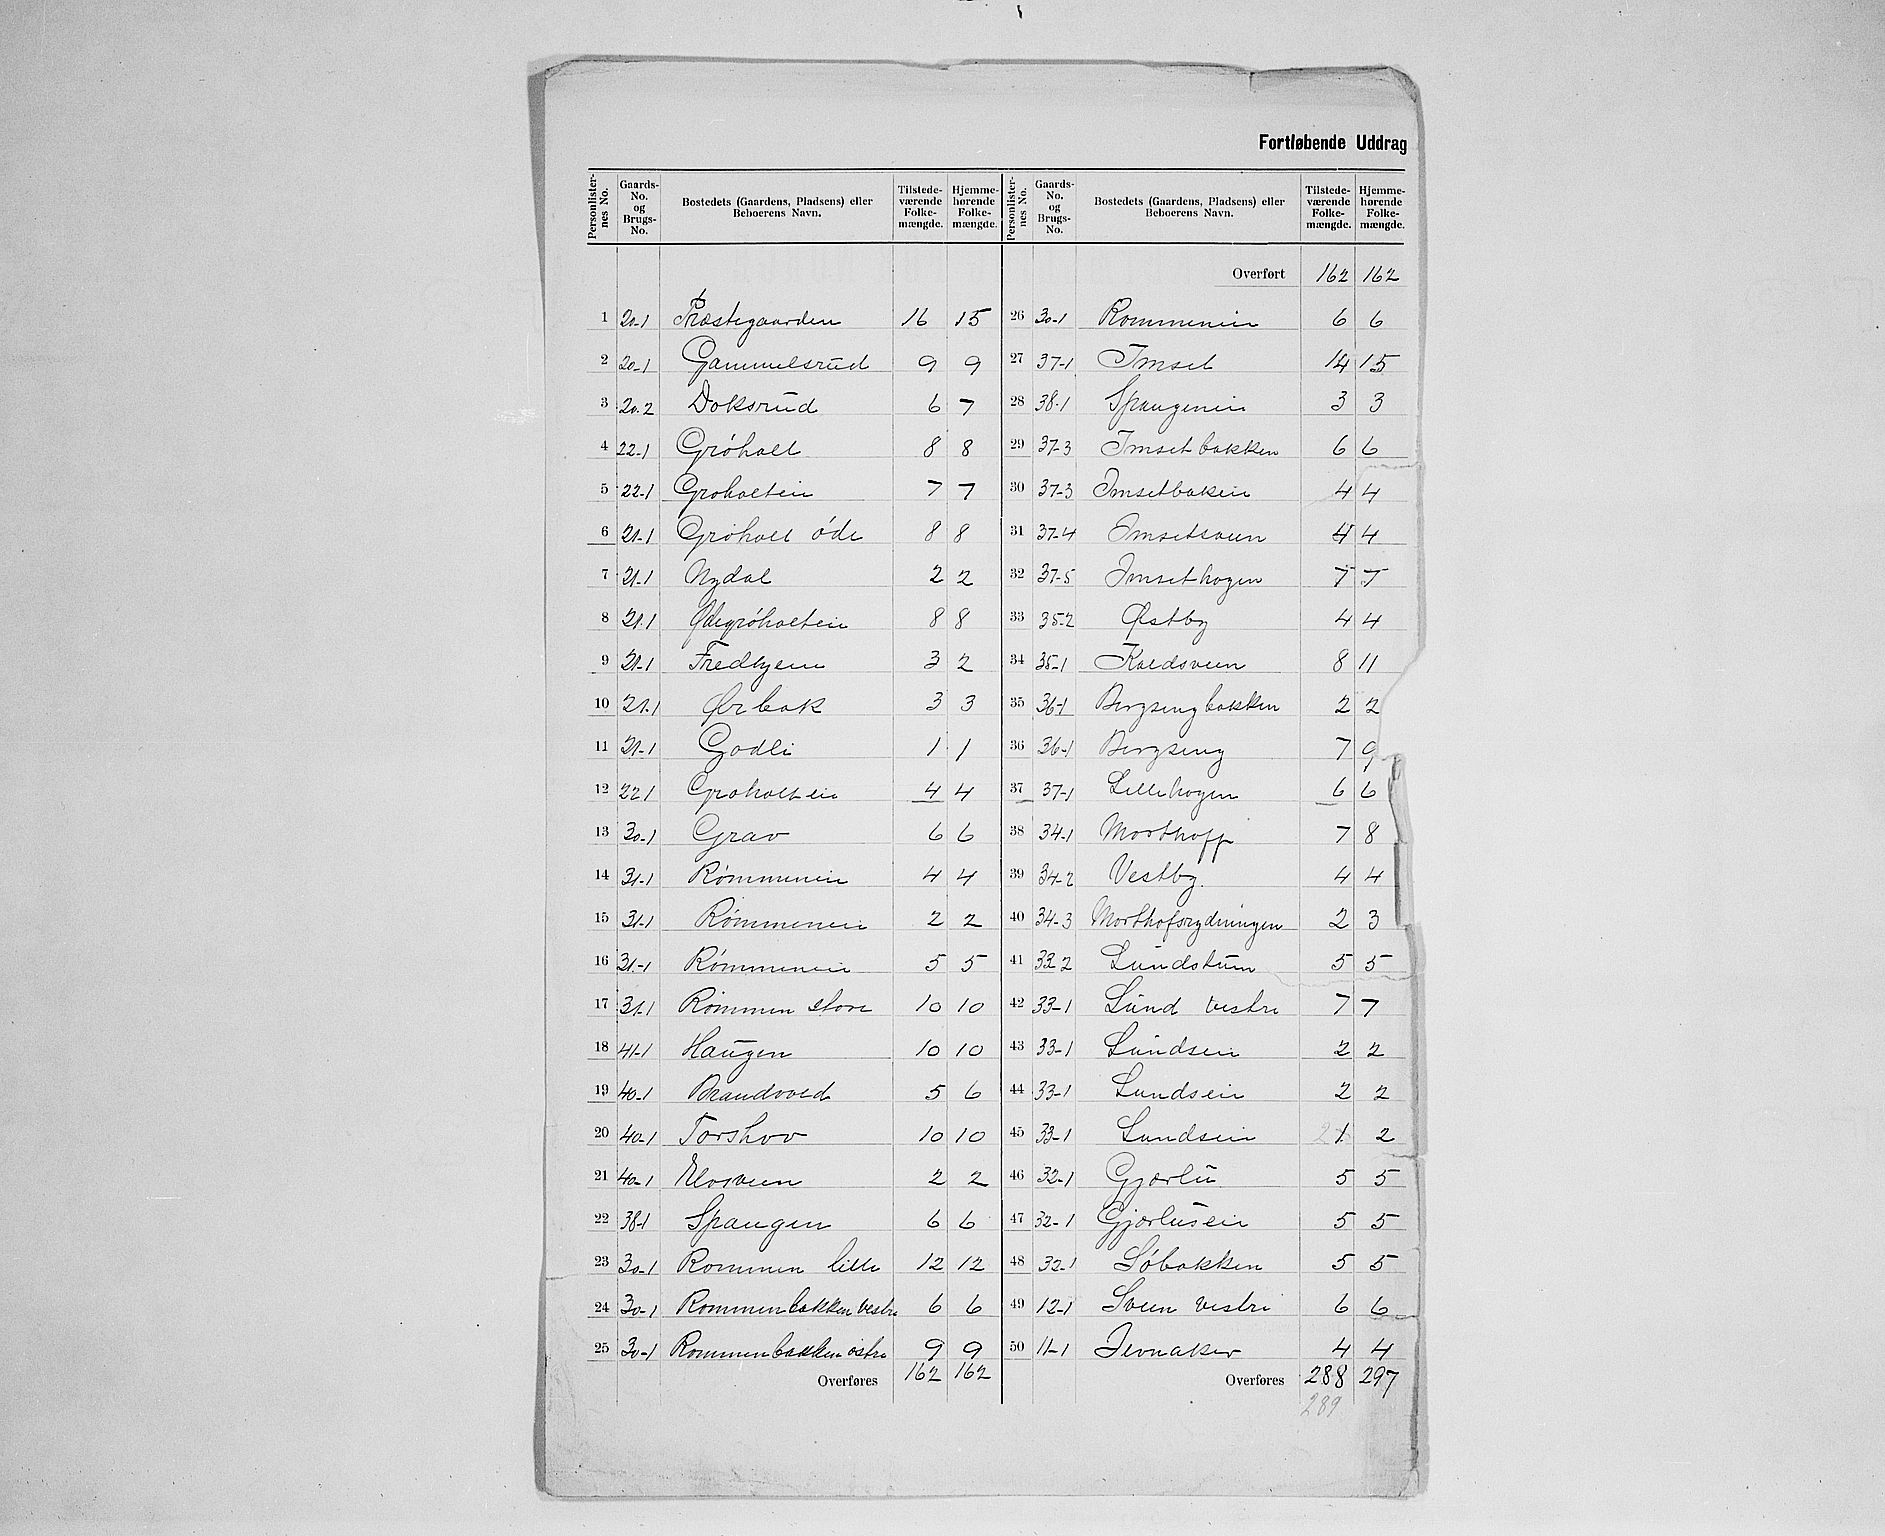 Fortløbende Uddrag
Personlister-nes No. | Gaards-No. og Brugs-No. | Bostedets (Gaardens, Pladsens) eller Beboerens Navn. | Tilstede-værende Folke-mængde. | Hjemme-hørende Folke-mængde.
1 20-1 Præstegaarden 16 15
2 20-1 Gammelsrud 9 9
3 20-2 Doksrud 6 7
4 22-1 Gróholt 8 8
5 22-1 Groholteie 7 7
6 21-1 Gróholt óde 8 8
7 21-1 Nydal 2 2
8 21-1 Ødegróholteie 8 8
9 21-1 Fredhjem 3 2
10 21-1 Ørbak 3 3
11 21-1 Godli 1 1
12 22-1 Groholteie 4 4
13 30-1 Grav 6 6
14 31-1 Rómmeneie 4 4
15 31-1 Rómmeneie 2 2
16 31-1 Rómmeneie 5 5
17 31-1 Rómmen store 10 10
18 41-1 Haugen 10 10
19 40-1 Brandvold 5 6
20 40-1 Torshov 10 10
21 40-1 Mosveen 2 2
22 38-1 Spangen 6 6
23 30-1 Rommen lille 12 12
24 30-1 Rommenbakken vestre 6 6
25 30-1 Rommenbakken østre 9 9
Overføres 162 162
Personlister-nes No. | Gaards-No. og Brugs-No. | Bostedets (Gaardens, Pladsens) eller Beboerens Navn. | Tilstede-værende Folke-mængde. | Hjemme-hørende Folke-mængde.
Overført 162 162
26 30-1 Rommeneie 6 6
27 37-1 Imset 14 15
28 38-1 Spangeneie 3 3
29 37-3 Imsetbakken 6 6
30 37-3 Imsetbakeie 4 4
31 37-4 Imsetsveen 4 4
32 37-5 Imsethagen 7 7
33 35-2 Østby 4 4
34 35-1 Koldsveen 8 11
35 36-1 Bergsengbakken 2 2
36 36-1 Bergseng 7 9
37 37-1 Lillehagen 6 6
38 34-1 Morthoff 7 8
39 34-2 Vestby. 4 4
40 34-3 Morthofsrydningen 2 3
41 33-2 Lundstuen 5 5
42 33-1 Lund vestre 7 7
43 33-1 Lundseie 2 2
44 33-1 Lundseie 2 2
45 33-1 Lundseie 1 2
46 32-1 Gjærlu 5 5
47 32-1 Gjærluseie 5 5
48 32-1 Lóbakken 5 5
49 12-1 Sveen vestre 6 6
50 11-1 Jevnaker 4 4
Overføres 288 297
289